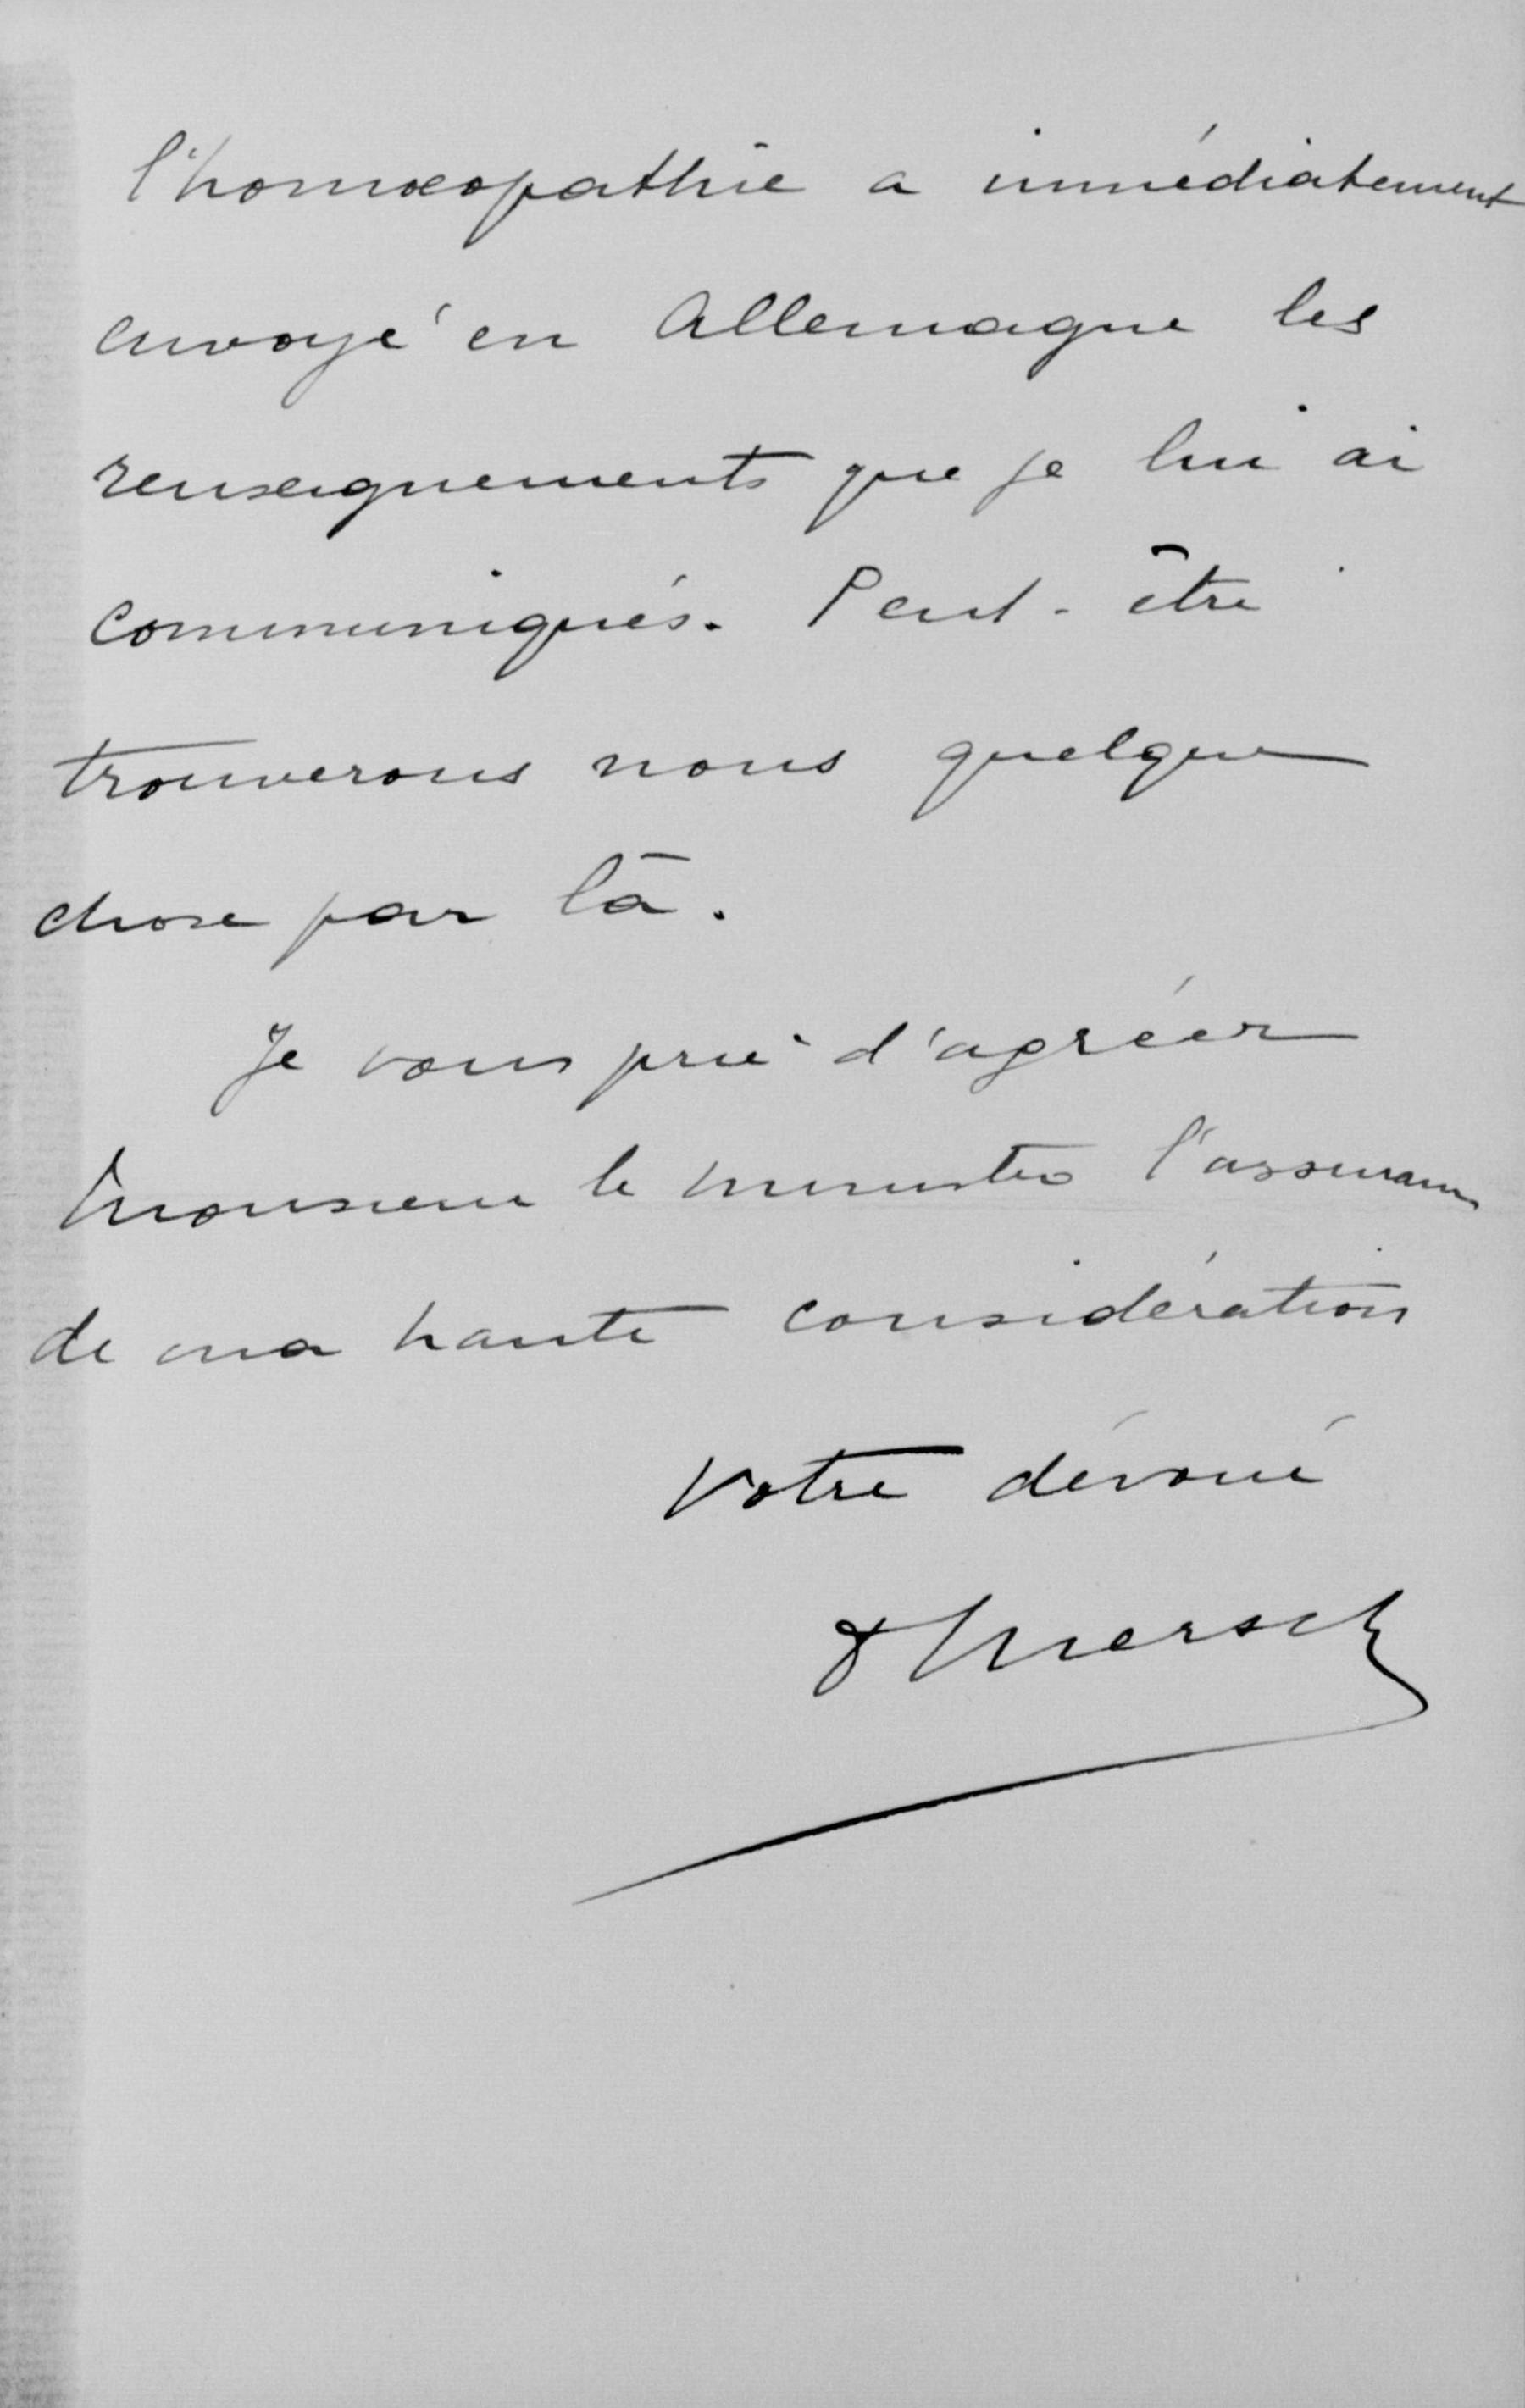 l'homœopathie a immédiatement
envoyé en Allemagne les
renseignements que je lui ai
communiqués. Peut-être
trouverons nous quelque
chose par là.
Je vous prie d'agréer
Monsieur le ministre l'assurance
de ma haute considération
Votre dévoué
Mersch